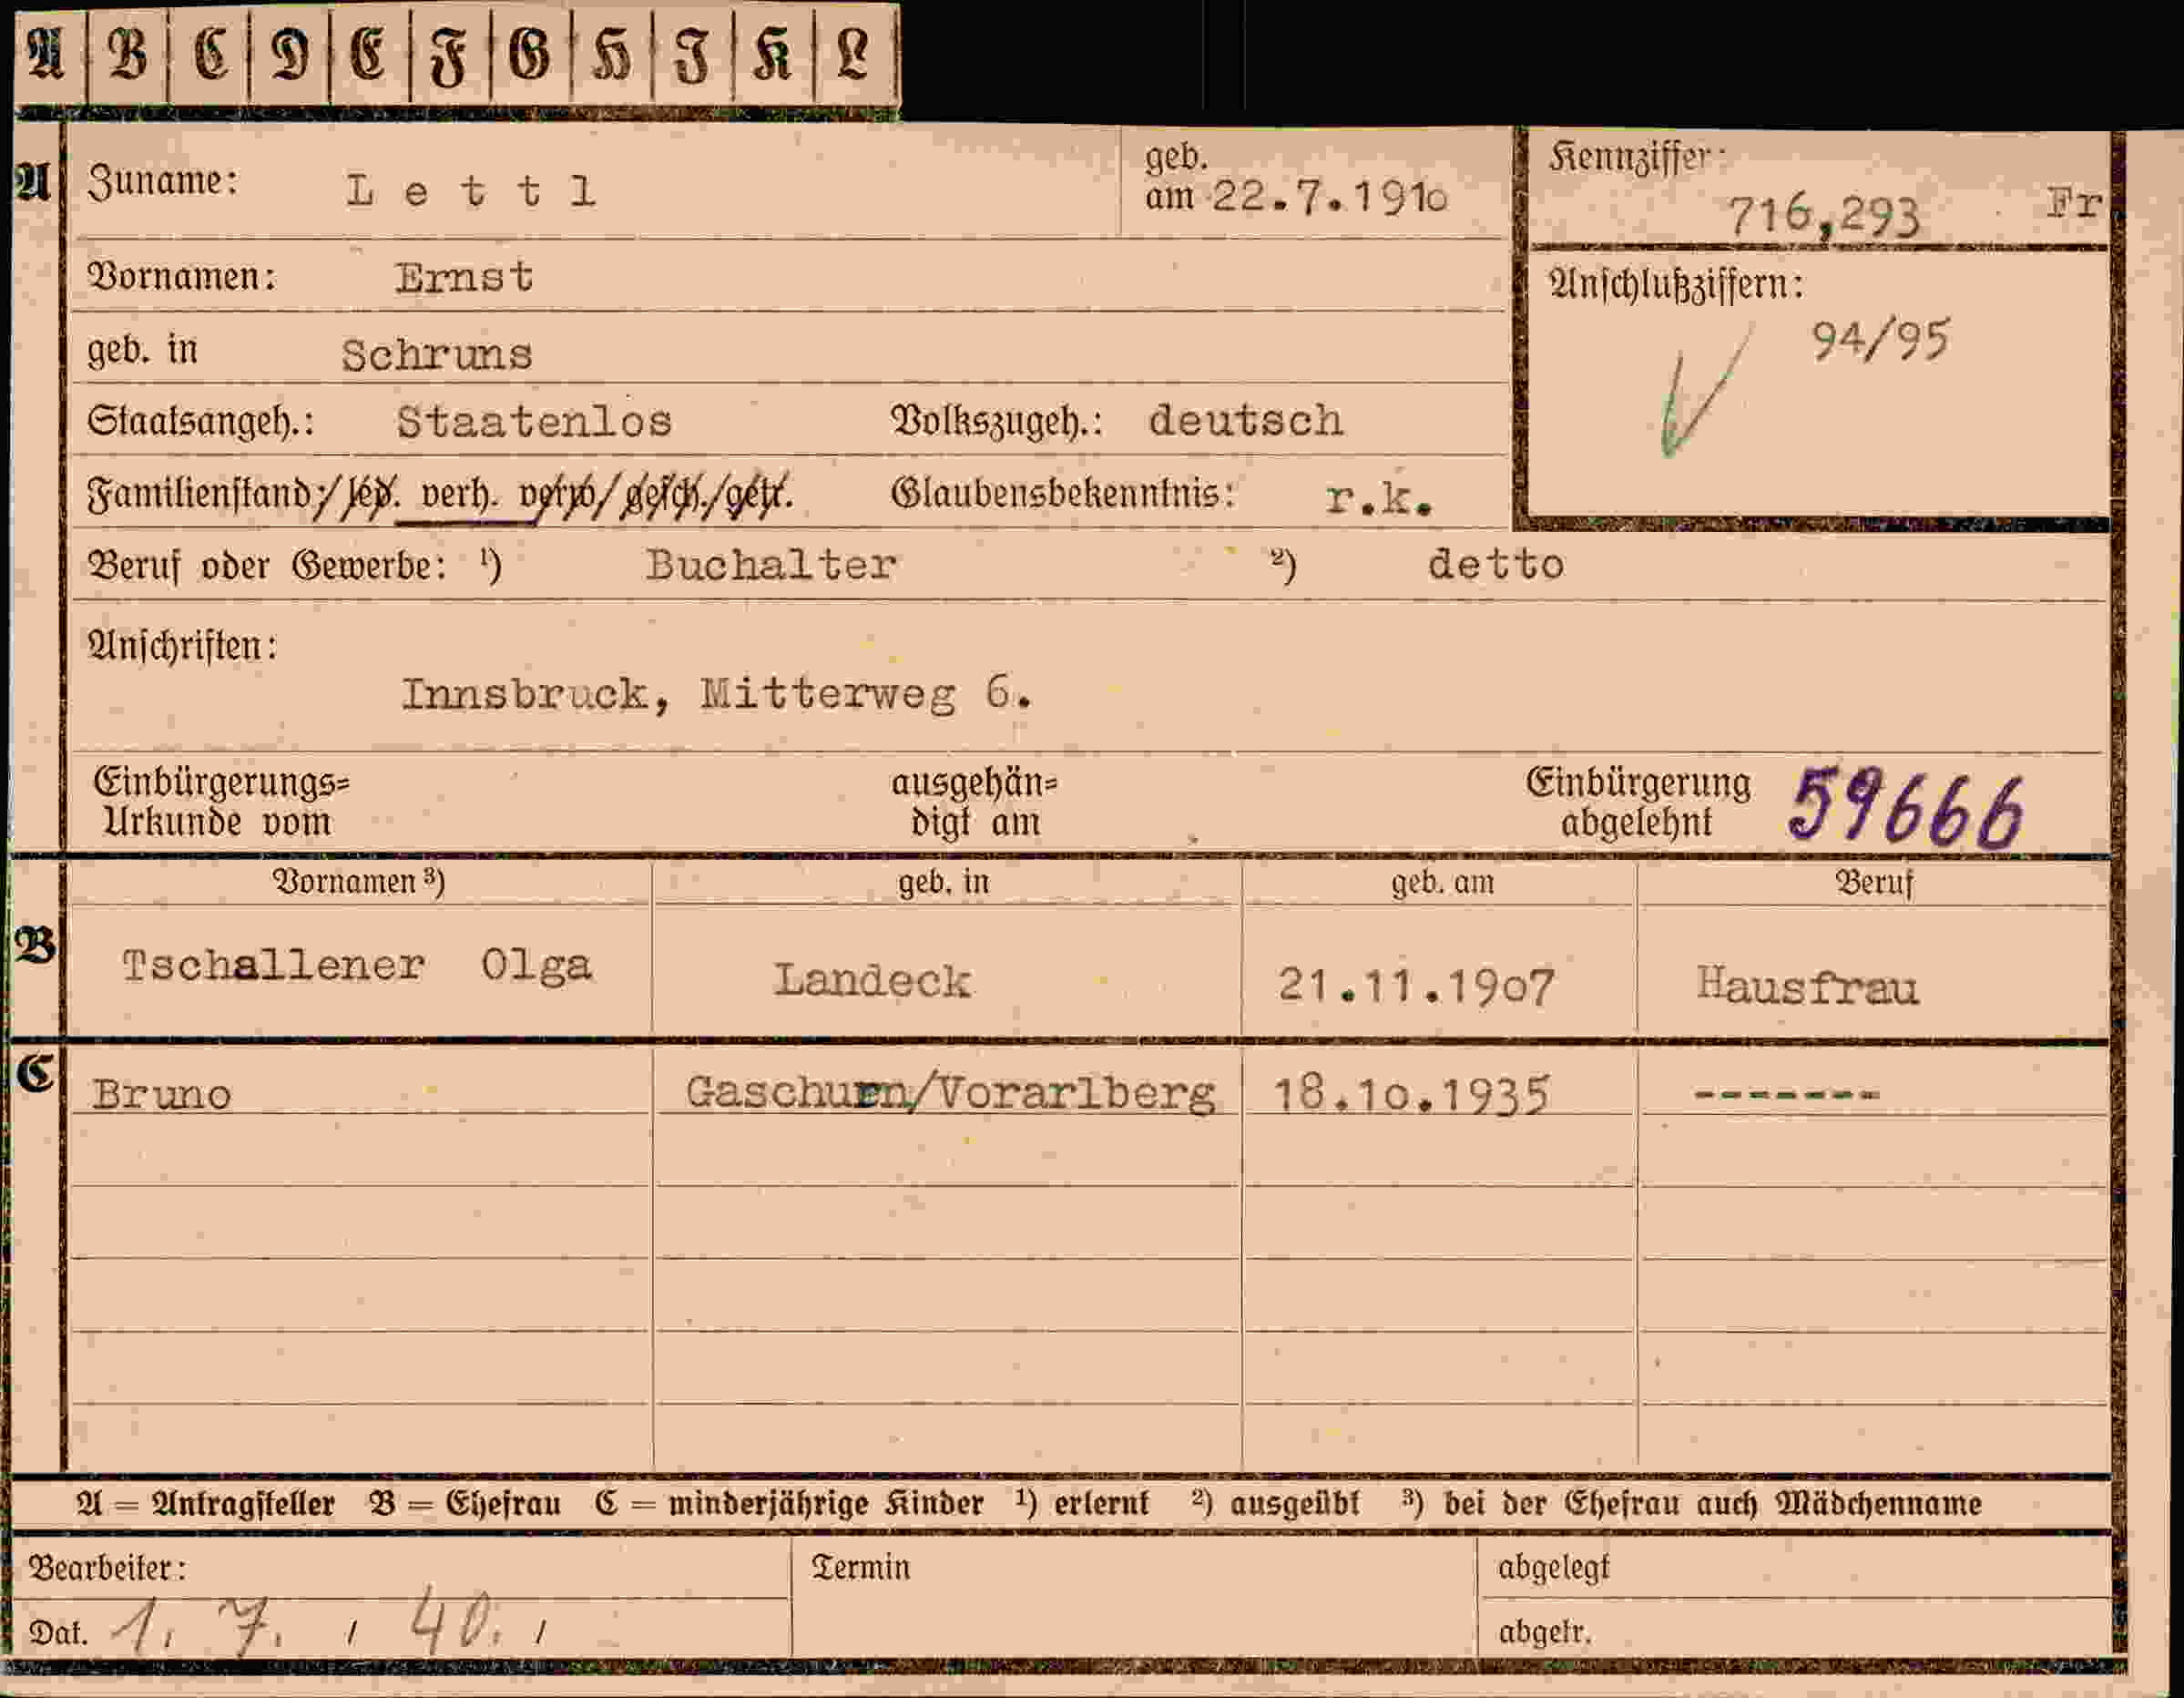 A B C D E F G H I K L
A Zuname: Lettl geb. am 22.7.1910 Kennziffer: 716,293 Fr
Vornamen: Ernst Anschlußziffern:
geb. in Schruns 94/95
Staatsangeh.: Staatenlos Volkszugeh.: deutsch
Familienstand: led. verh. verw. gesch./getr. Glaubensbekenntnis: r.k.
Beruf oder Gewerbe: ¹) Buchalter ²) detto
Anschriften:
Innsbruck, Mitterweg 6.
Einbürgerungs= ausgehän= Einbürgerung 59666
Urkunde vom digt am abgelehnt
Vornamen ³) geb. in geb. am Beruf
B Tschallener Olga Landeck 21.11.1907 Hausfrau
C Bruno Gaschurn/Vorarlberg 18.10.1935 -------
A = Antragsteller B = Ehefrau C = minderjährige Kinder ¹) erlernt ²) ausgeübt ³) bei der Ehefrau auch Mädchenname
Bearbeiter: Termin abgelegt
Dat. 1. 7. / 40. / abgetr.